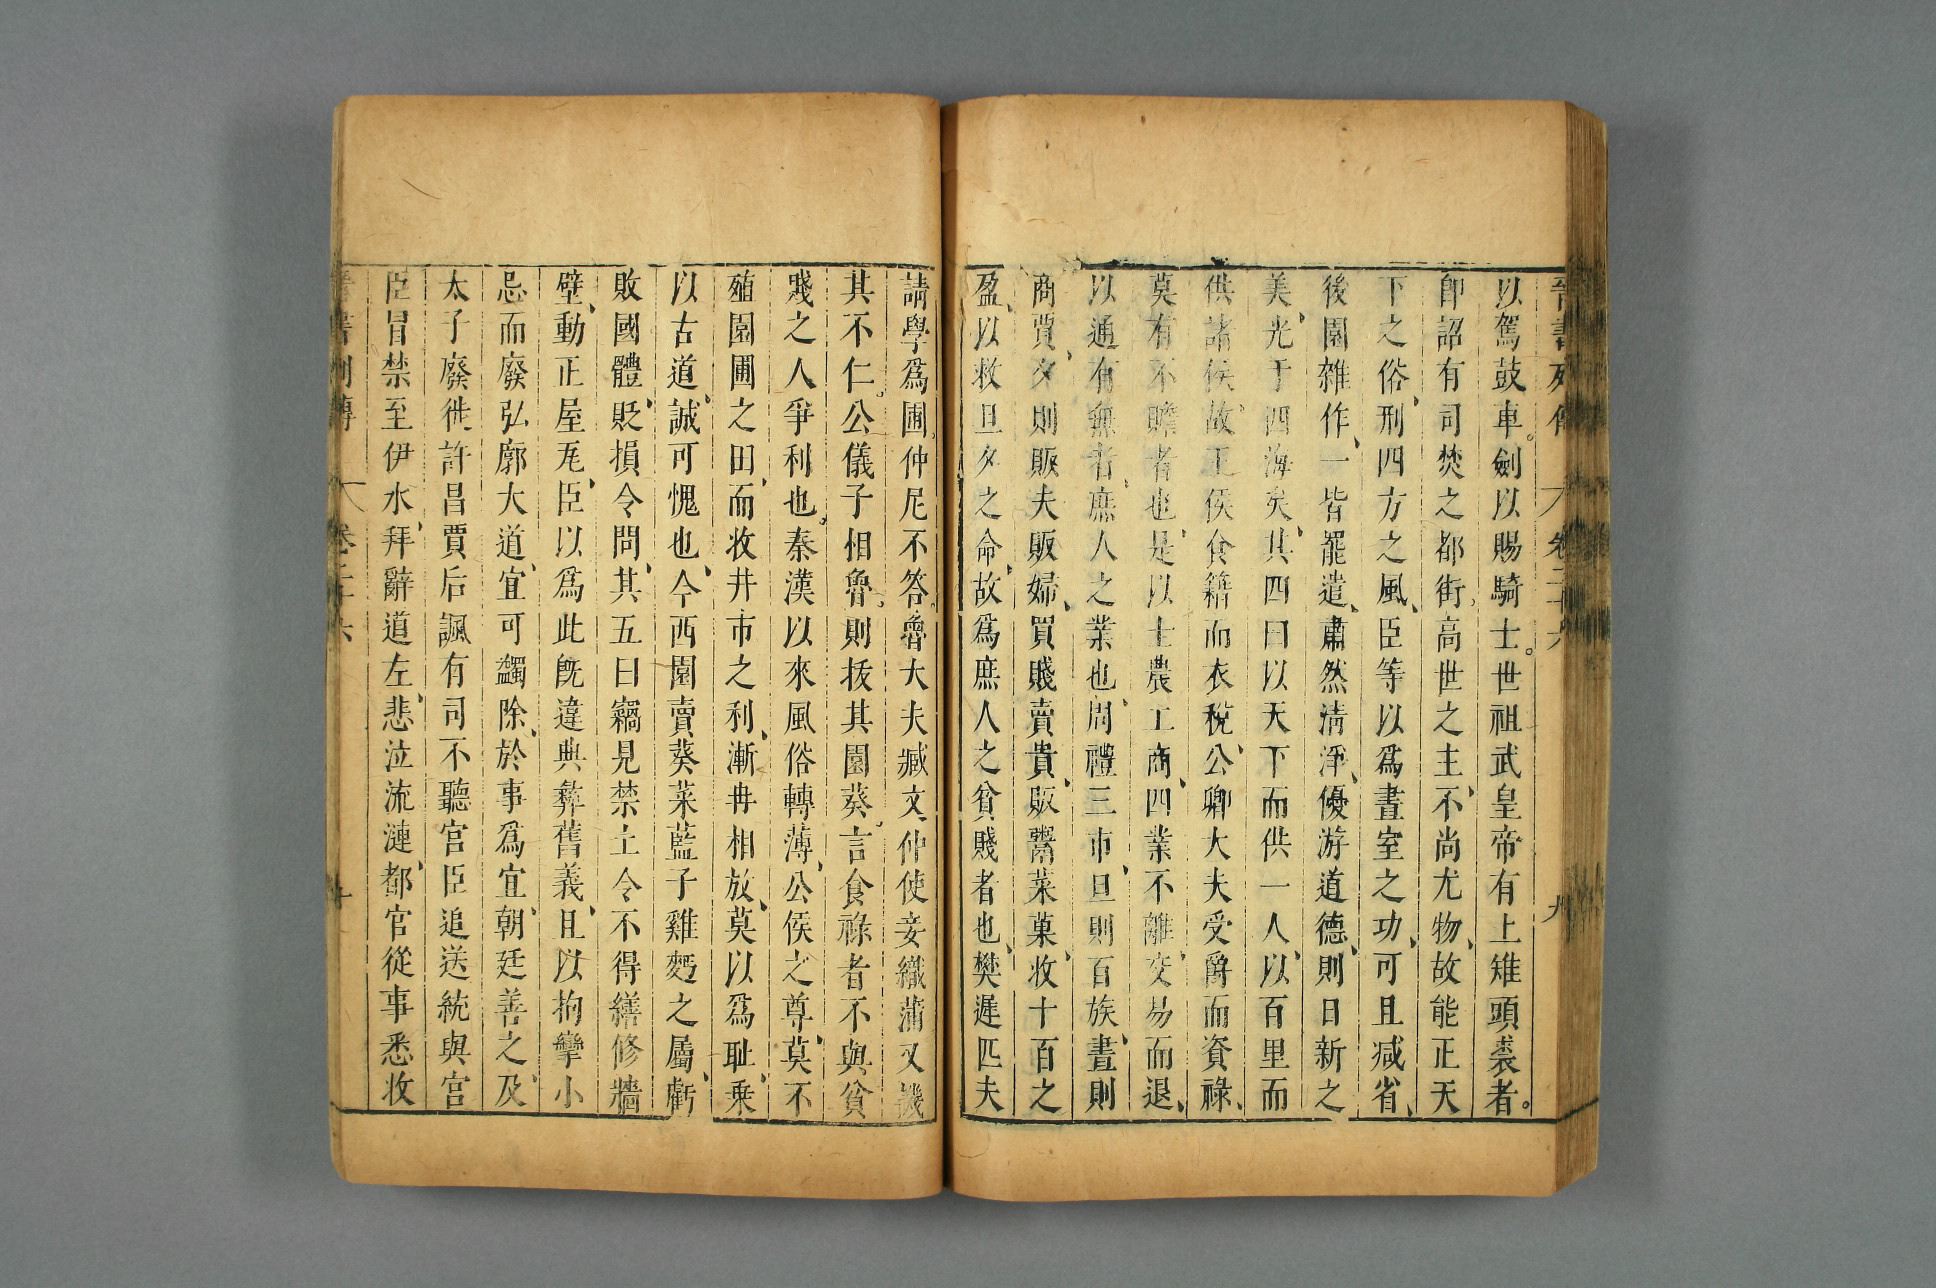 晉書列傳 卷二十六 九
以駕鼓車。劍以賜騎士。世祖武皇帝有上雉頭裘者。
卽詔有司焚之都街。高世之主、不尚尤物、故能正天
下之俗、刑四方之風、臣等以爲晝室之功、可且減省、
後園雜作、一皆罷遣、肅然清淨、優游道德、則日新之
美、光于四海矣、其四曰以天下而供一人、以百里而
供諸侯、故王侯食籍而衣稅、公卿大夫受爵而資祿、
莫有不贍者也、是以士農工商、四業不雜、交易而退、
以通有無者、庶人之業也、周禮三市、旦則百族、晝則
商賈、夕則販夫販婦、買賤賣貴、販鬻菜菓、收十百之
盈、以救旦夕之命、故爲庶人之貧賤者也、樊遲匹夫
請學爲圃。仲尼不答。魯大夫臧文仲使妾織蒲又譏
其不仁。公儀子相魯。則拔其園葵。言食祿者不與貧
賤之人爭利也。秦漢以來風俗轉薄、公侯之尊、莫不
殖園圃之田、而收井市之利、漸冉相放、莫以爲耻、乗
以古道、誠可愧也、今西園賣葵菜藍子雞麪之屬、虧
敗國體、貶損令問、其五曰竊見禁土令不得繕修牆
壁、動正屋瓦、臣以爲此旣違典彝舊義、且以拘攣小
忌而廢弘廓大道、宜可蠲除、於事爲宜、朝廷善之、及
太子廢徙許昌賈后諷有司不聽宮臣追送統與宮
臣冒禁至伊水、拜辭道左、悲泣流漣、都官從事悉收
晉書列傳 卷二十六 十